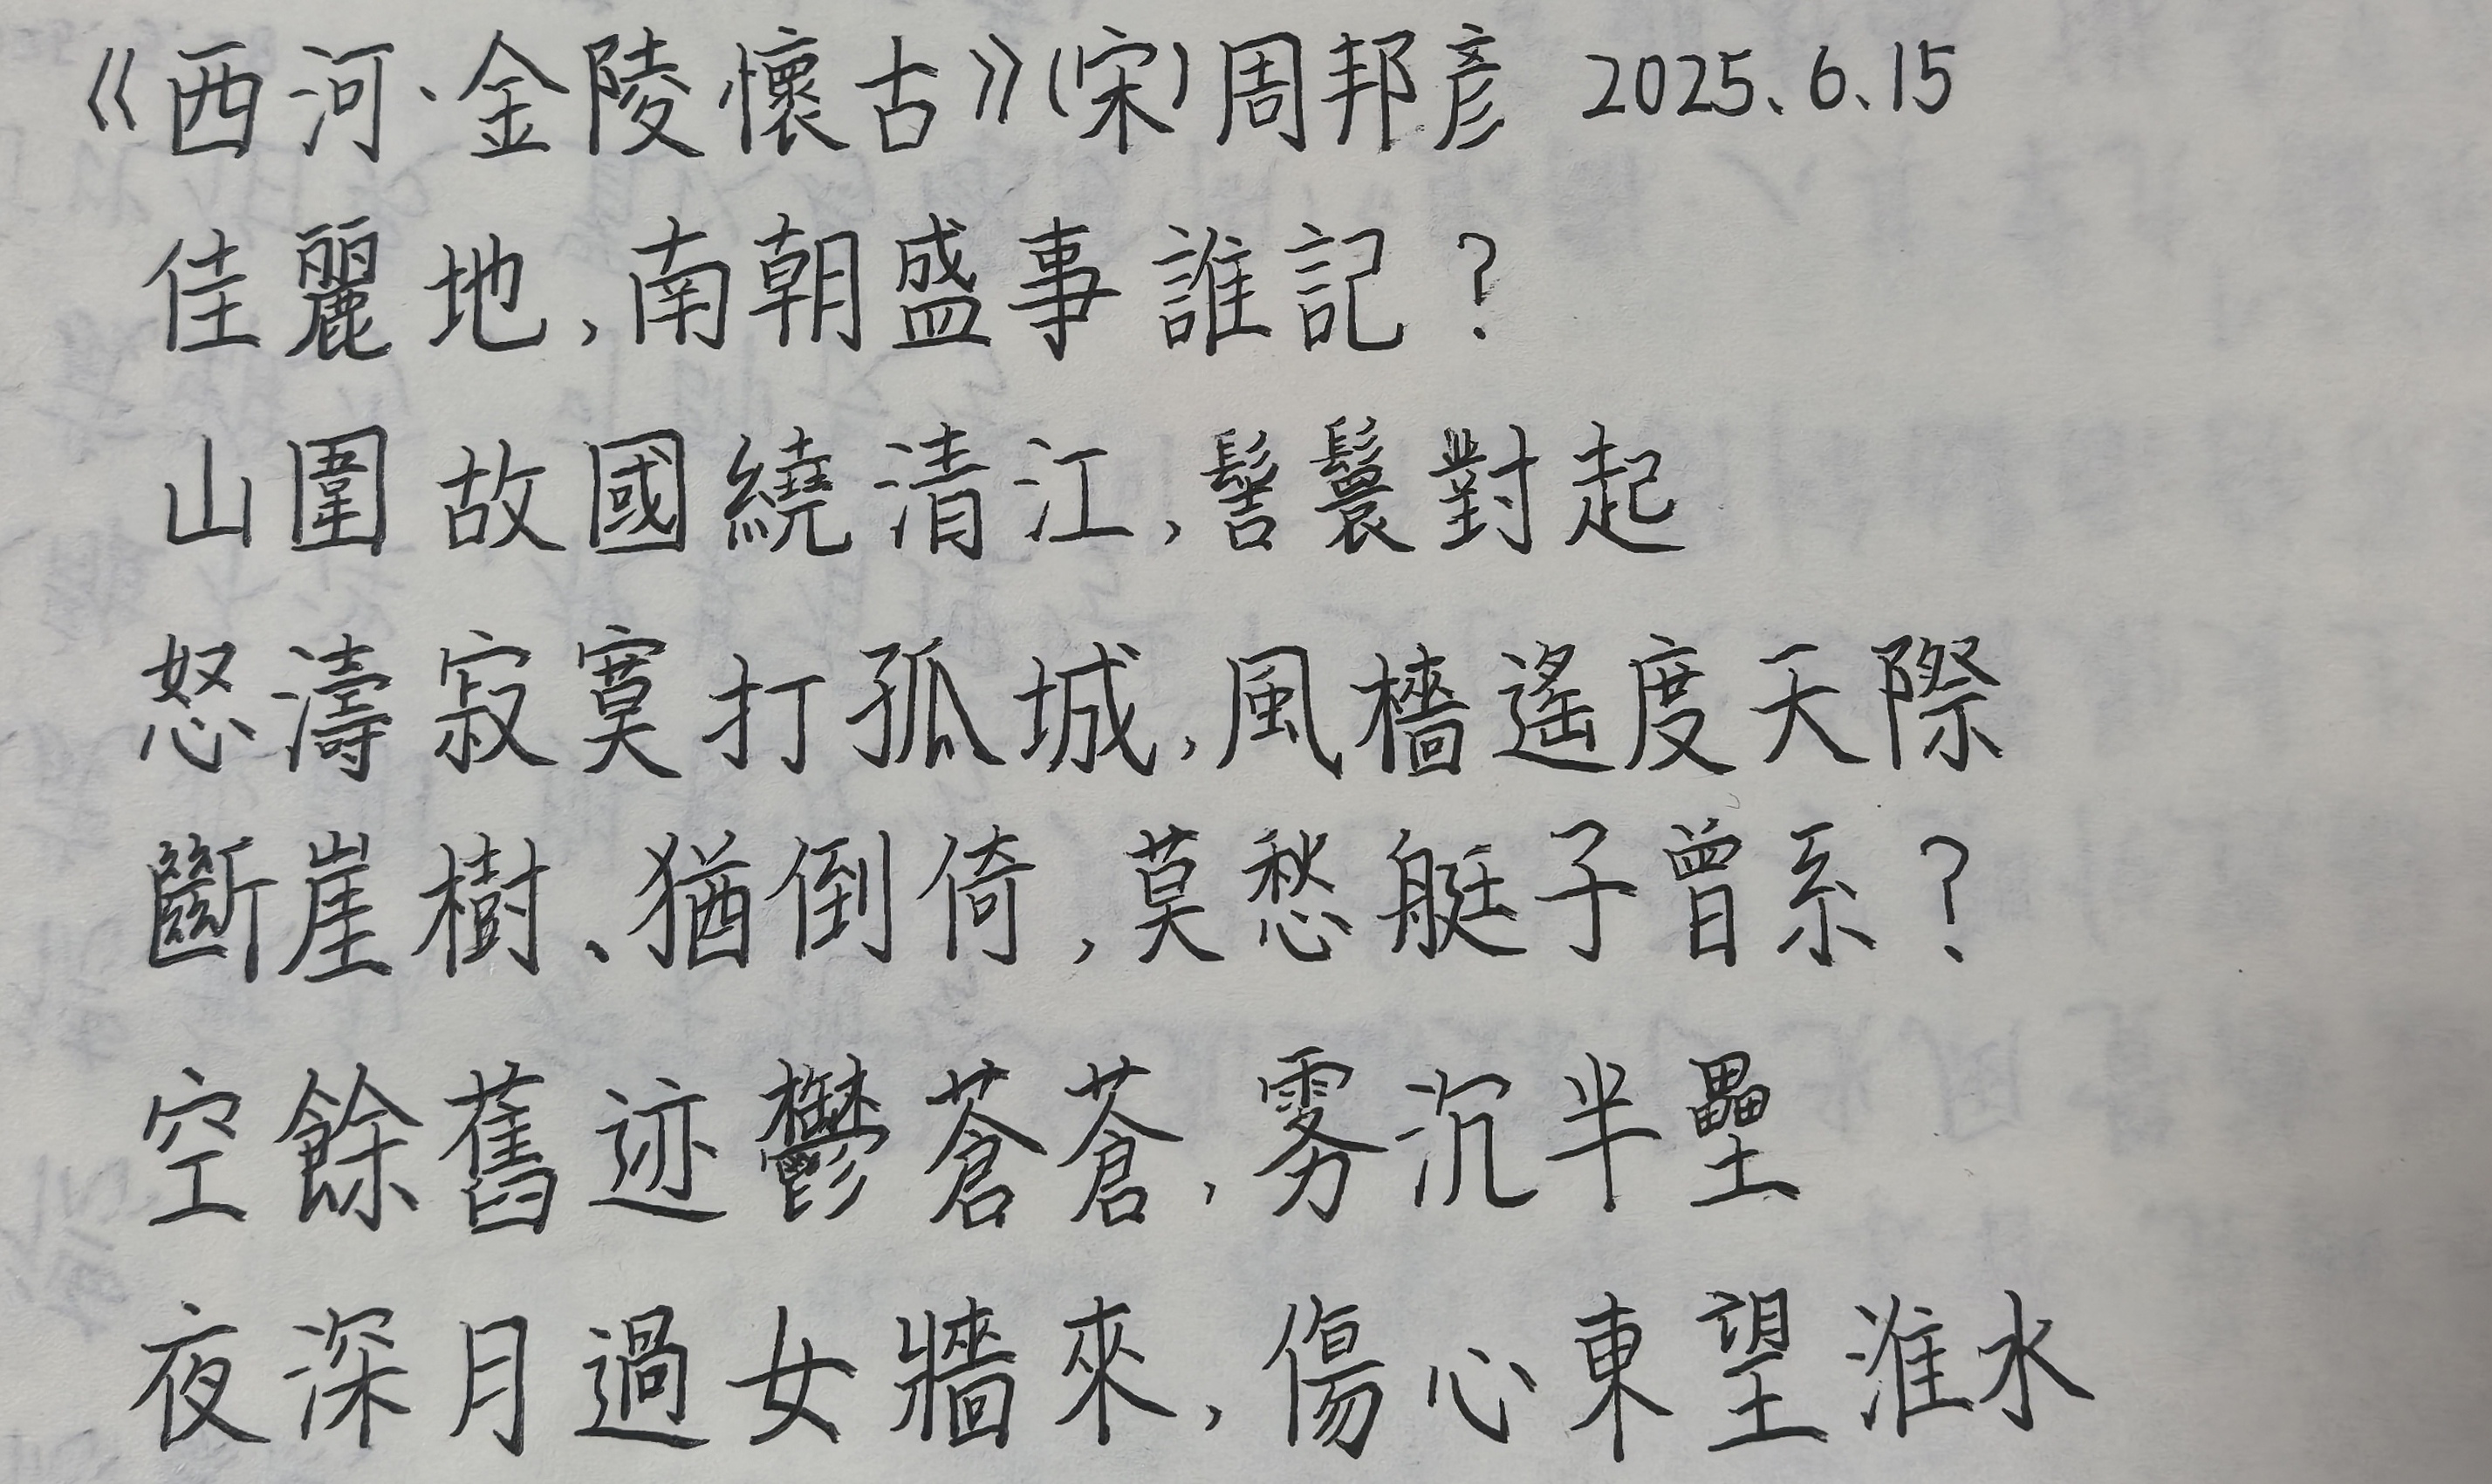 《西河·金陵懷古》(宋)周邦彥 2025.6.15
佳麗地,南朝盛事誰記?
山圍故國繞清江,髻鬟對起
怒濤寂寞打孤城,風檣遙度天際
斷崖樹、猶倒倚,莫愁艇子曾系?
空餘舊迹鬱蒼蒼,雾沉半壘
夜深月過女牆來,傷心東望淮水